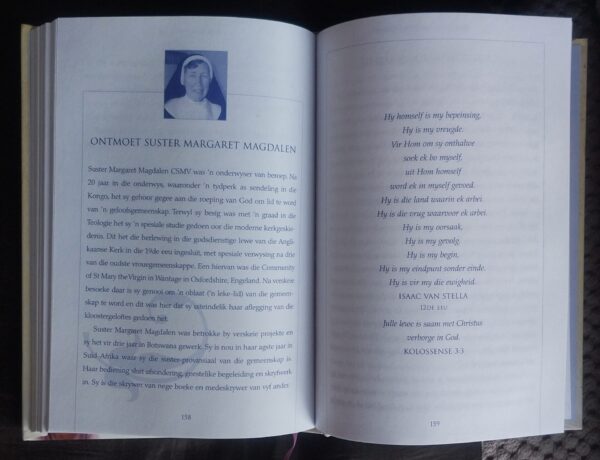 ONTMOET SUSTER MARGARET MAGDALEN
Suster Margaret Magdalen CSMV was 'n onderwyser van beroep. Na
20 jaar in die onderwys, waaronder 'n tydperk as sendeling in die
Kongo, het sy gehoor gegee aan die roeping van God om lid te word
van 'n geloofsgemeenskap. Terwyl sy besig was met 'n graad in die
Teologie het sy 'n spesiale studie gedoen oor die moderne kerkgeskie-
denis. Dit het die herlewing in die godsdienstige lewe van die Angli-
kaanse Kerk in die 19de eeu ingesluit, met spesiale verwysing na drie
van die oudste vrousgemeenskappe. Een hiervan was die Community
of St Mary the Virgin in Wantage in Oxfordshire, Engeland. Na verskeie
besoeke daar is sy genooi om 'n oblaat ('n leke-lid) van die gemeen-
skap te word en dit was hier dat sy uiteindelik haar aflegging van die
kloostergeloftes gedoen het.
Suster Margaret Magdalen was betrokke by verskeie projekte en
sy het vir drie jaar in Botswana gewerk. Sy is nou in haar agste jaar in
Suid-Afrika waar sy die suster-provinsiaal van die gemeenskap is.
Haar bediening sluit afsondering, geestelike begeleiding en skryfwerk
in. Sy is die skrywer van nege boeke en medeskrywer van vyf ander.
158
Hy homself is my bepeinsing,
Hy is my vreugde.
Vir Hom om sy onthalwe
soek ek bo myself,
uit Hom homself
word ek in myself gevoed.
Hy is die land waarin ek arbei.
Hy is die vrug waarvoor ek arbei.
Hy is my oorsaak,
Hy is my gevolg.
Hy is my begin,
Hy is my eindpunt sonder einde.
Hy is vir my die ewigheid.
ISAAC VAN STELLA
12DE EEU
Julle lewe is saam met Christus
verborge in God.
KOLOSSENSE 3:3
159